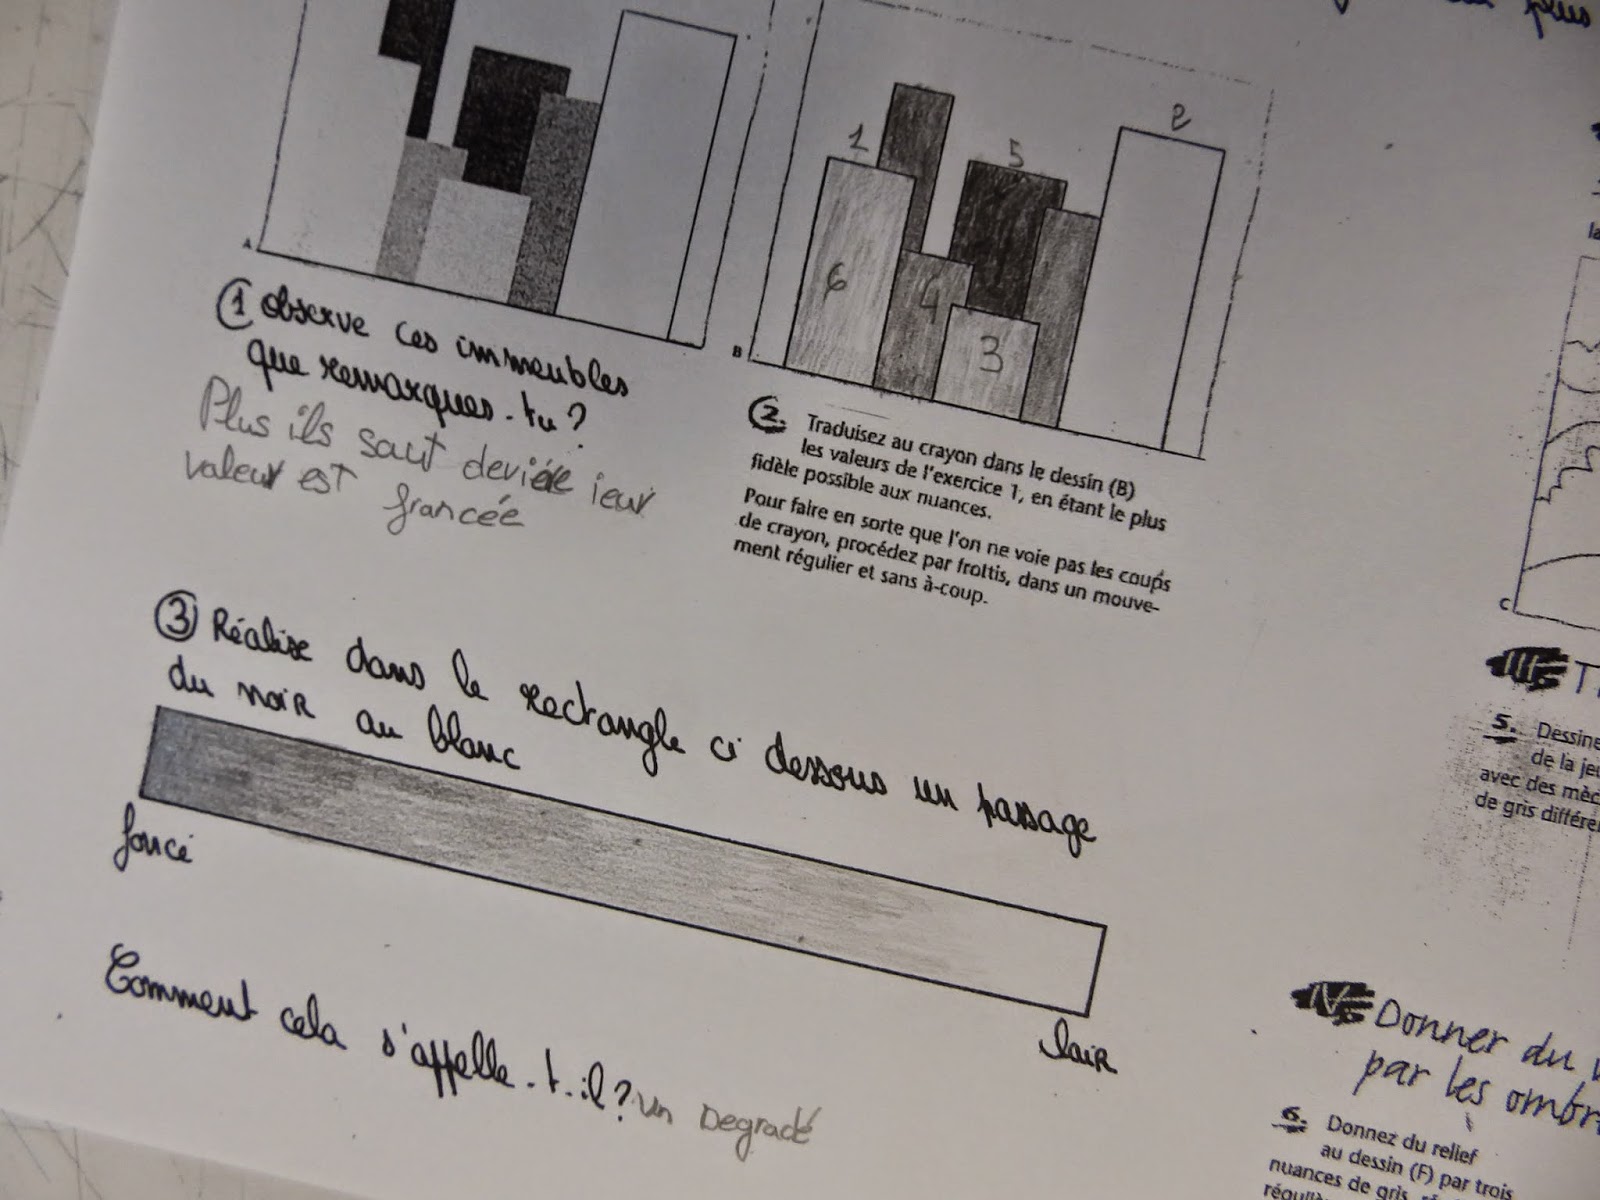 plus
A
1
2
5
6
4
3
B
① Observe ces immeubles
que remarques-tu?
Plus ils saut deviére ieur
valeur est francée
2. Traduisez au crayon dans le dessin (B)
les valeurs de l'exercice 1, en étant le plus
fidèle possible aux nuances.
Pour faire en sorte que l'on ne voie pas les coups
de crayon, procédez par frottis, dans un mouve-
ment régulier et sans à-coup.
③ Réalise dans le rectangle ci dessous un passage
du noir au blanc
foncé
clair
Comment cela s'appelle-t-il? un Degradé
la
C
III.
5. Dessine
de la jeu
avec des mèc
de gris différe
IV. Donner du
par les ombr
6. Donnez du relief
au dessin (F) par trois
nuances de gris